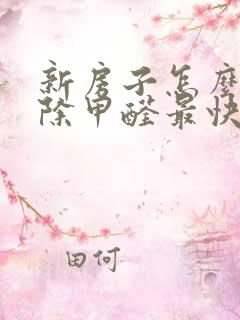 新房子怎麽
除甲醛最快
田何